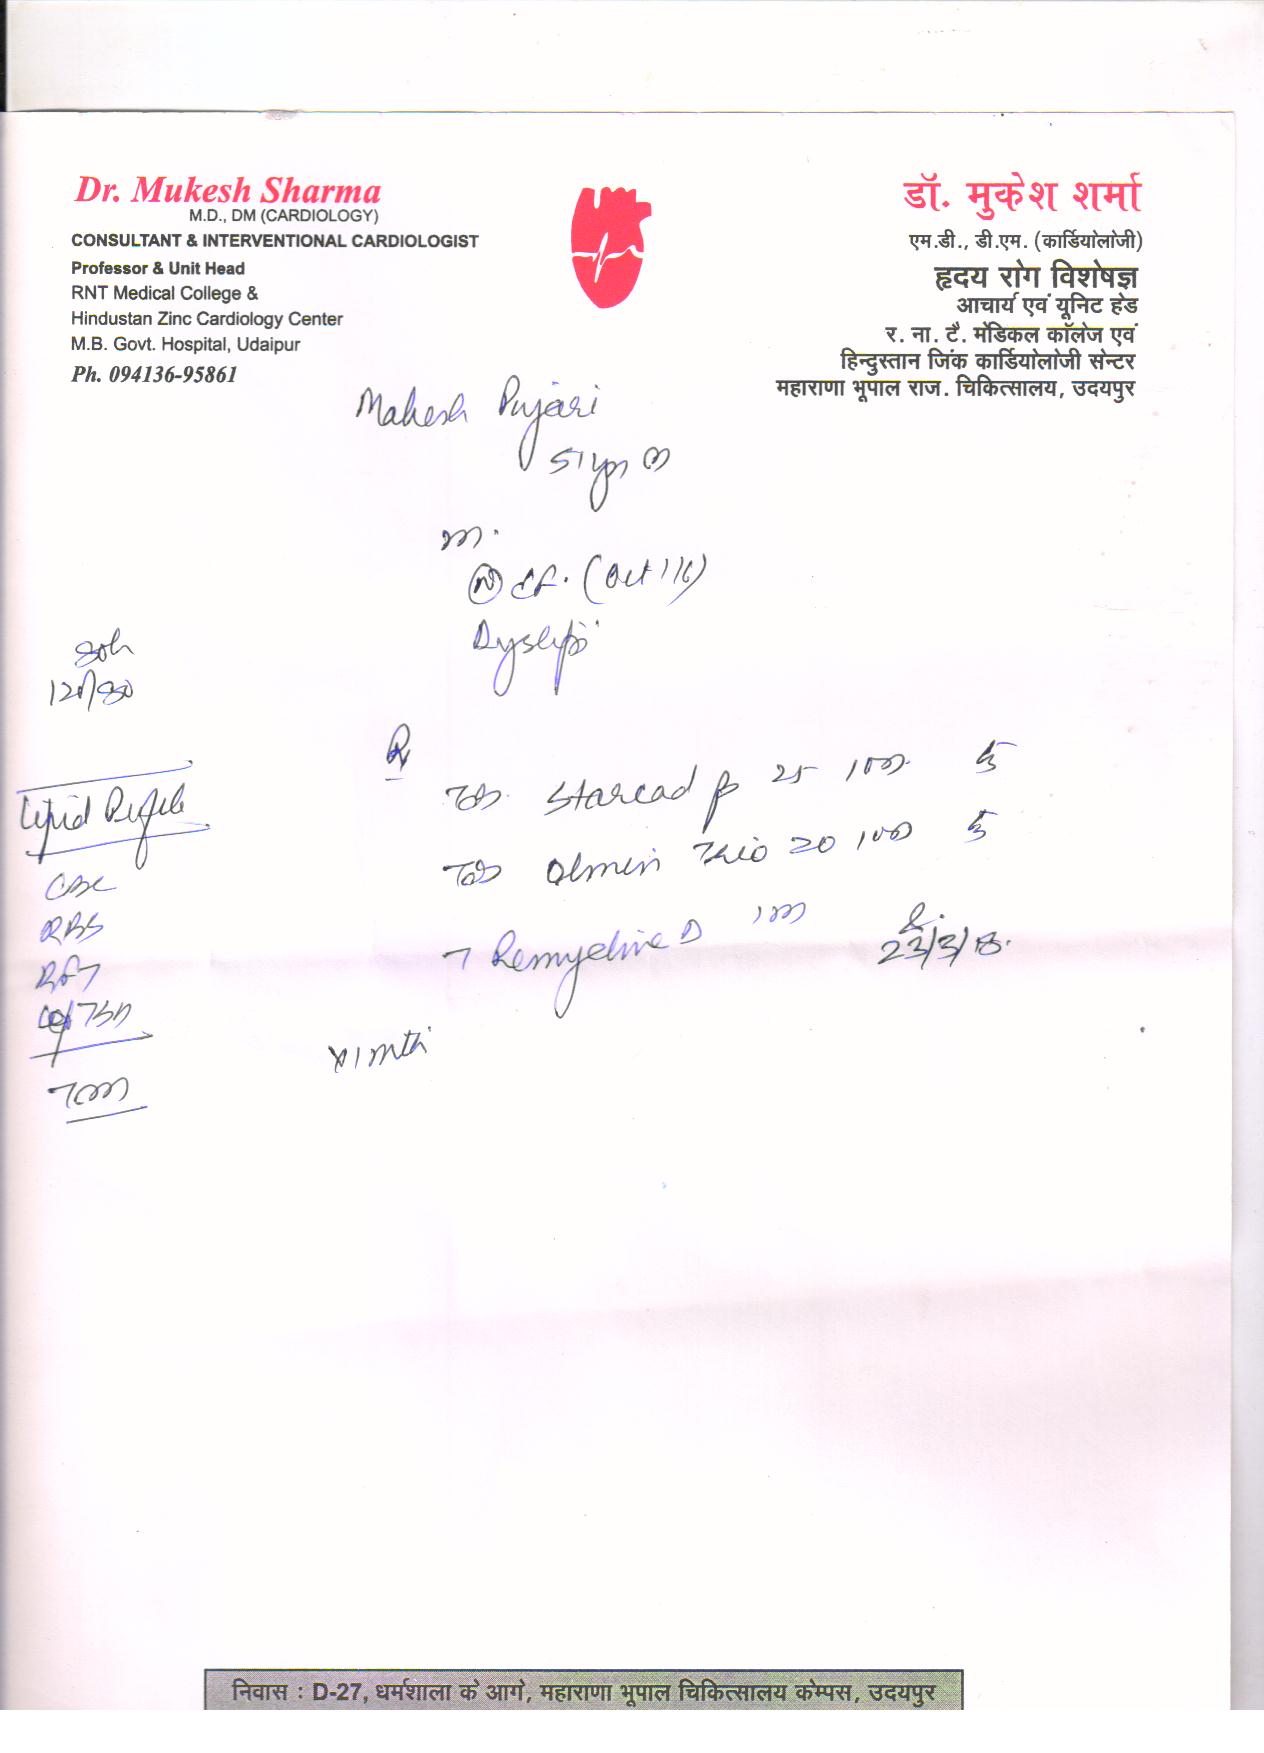 Dr. Mukesh Sharma
M.D., DM (CARDIOLOGY)
CONSULTANT & INTERVENTIONAL CARDIOLOGIST
Professor & Unit Head
RNT Medical College &
Hindustan Zinc Cardiology Center
M.B. Govt. Hospital, Udaipur
Ph. 094136-95861
डॉ. मुकेश शर्मा
एम.डी., डी.एम. (कार्डियोलोजी)
हृदय रोग विशेषज्ञ
आचार्य एवं यूनिट हेड
र. ना. टै. मेडिकल कॉलेज एवं
हिन्दुस्तान जिंक कार्डियोलोजी सेन्टर
महाराणा भूपाल राज. चिकित्सालय, उदयपुर
Mahesh Pujari
51yr M
(N) EF. (Oct 116)
Dyslip
120/80
Rx
Tab. Starcad β 25 1 OD
Tab Olmin Trio 20 1 OD
T D
23/3/18.
x 1 mth
Lipid Profile
CBC
RBS
RFT
निवास : D-27, धर्मशाला के आगे, महाराणा भूपाल चिकित्सालय कैम्पस, उदयपुर